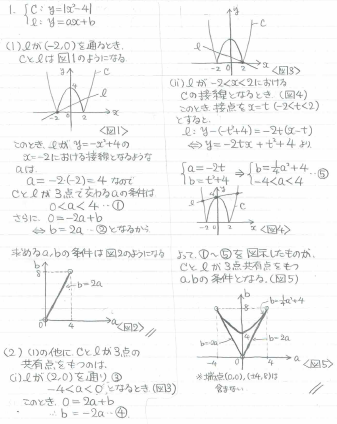 1. { C: y=|x²-4|
   l: y=ax+b
(1) lが(-2,0)を通るとき、
Cとlは図1のようになる
y C l
-2 0 2 x
<図1>
このとき、lが y=-x²+4の
x=-2における接線となるような
aは、
a=-2·(-2)=4 なので
Cとlが3点で交わるaの条件は
0<a<4 …①
さらに 0=-2a+b
⇔ b=2a …②となるから
求めるa,bの条件は図2のようになる
b
8
b=2a
0 4 a
<図2>
(2) (1)の他に、Cとlが3点の
共有点をもつのは、
(i) lが(2,0)を通り、③
-4<a<0となるとき(図3)
このとき、0=2a+b
∴ b=-2a …④
y C
l
-2 0 2 x
<図3>
(ii) lが-2<x<2における
Cの接線となるとき、(図4)
このとき、接点をx=t (-2<t<2)
とすると、
l: y-(-t²+4)=-2t(x-t)
⇔ y=-2tx+t²+4 より
{ a=-2t
  b=t²+4 ⇒ { b=¼a²+4
  -4<a<4 …⑤
y C
4
l
-2 0 2 x
<図4>
よって、①〜⑤を図示したものが、
Cとlが3点共有点をもつ
a,bの条件となる。(図5)
b
b=¼a²+4
8
4
b=-2a b=2a
-4 0 4 a
<図5>
※端点(0,0), (±4,8)は
含まない